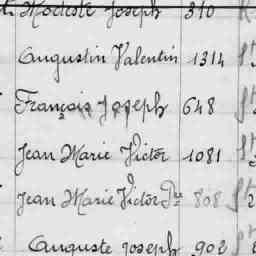 Modeste Joseph 310
Augustin Valentin 1314 St
François Joseph 648 St
Jean Marie Victor 1081 St
Jean Marie Victor Pre 808 St
Auguste Joseph 902 St